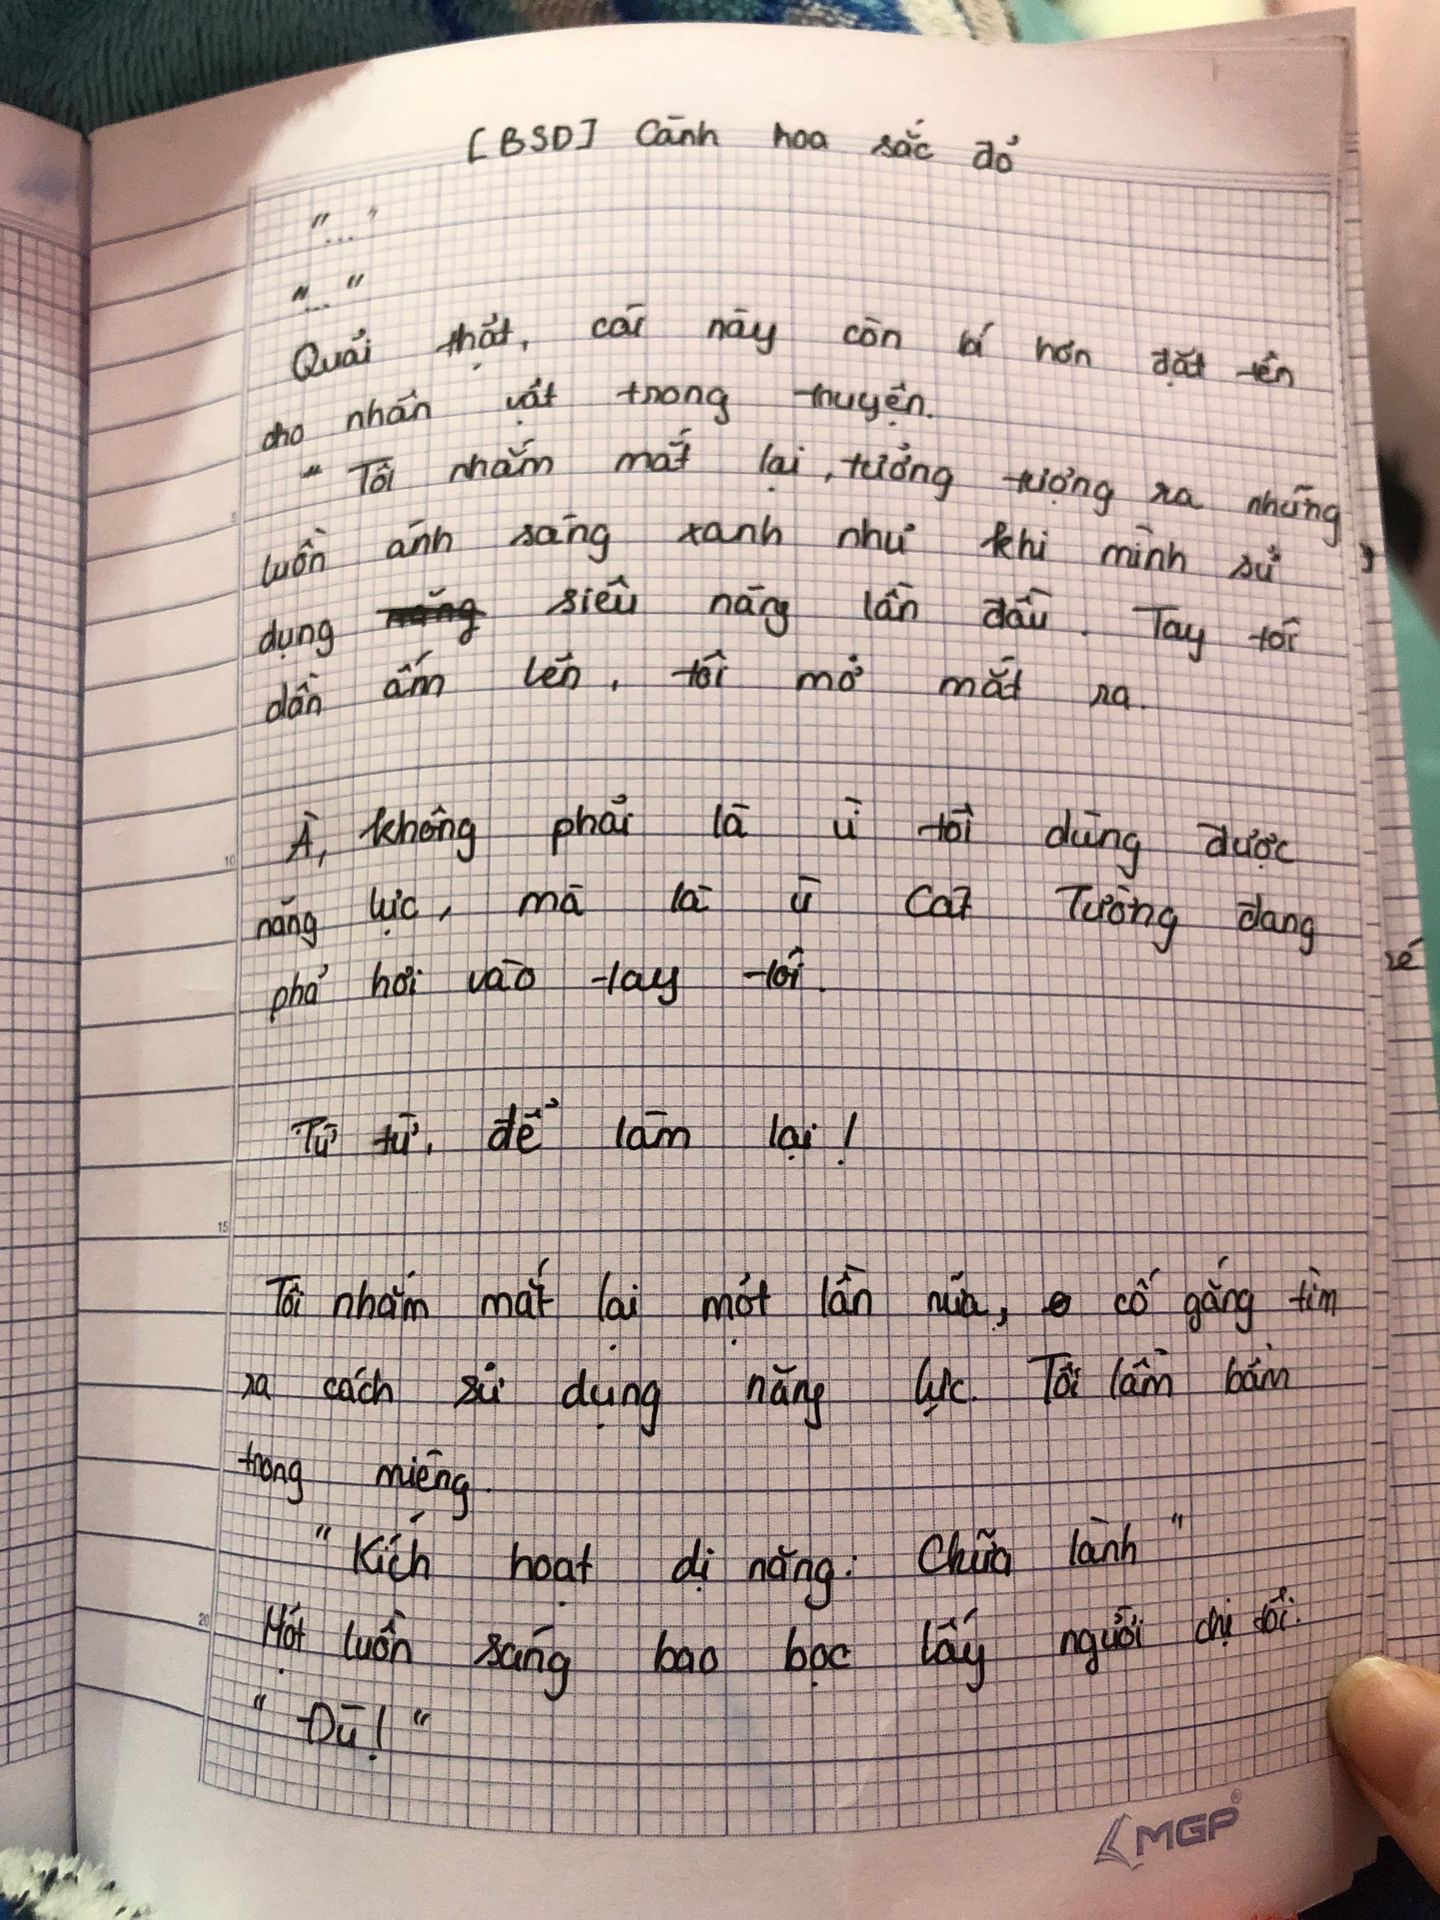 [BSD] Cành hoa sắc đỏ
"..."
"..."
Quái thật, cái này còn bí hơn đặt tên
cho nhân vật trong truyện.
" Tôi nhắm mắt lại, tưởng tượng ra những
luồn ánh sáng xanh như khi mình sử
dụng siêu năng lần đầu. Tay tôi
dần ấm lên, tôi mở mắt ra.
À, không phải là vì tôi dùng được
năng lực, mà là vì Cát Tường đang
phả hơi vào tay tôi.
Từ từ, để làm lại!
Tôi nhắm mắt lại một lần nữa, cố gắng tìm
ra cách sử dụng năng lực. Tôi lẩm bẩm
trong miệng.
"Kích hoạt dị năng: Chữa lành"
Một luồn sáng bao bọc lấy người chị tôi.
" Đù! "
MGP